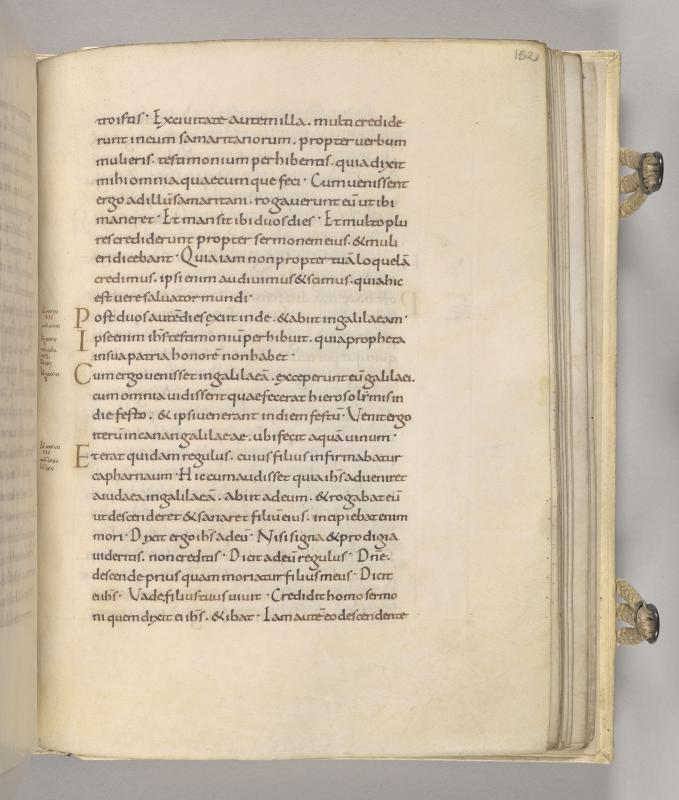 152
troistis · Ex civitate autem illa . multi credide
runt in eum samaritanorum . propter verbum
mulieris . testimonium perhibentis . quia dixit
mihi omnia quaecumque feci · Cum venissent
ergo ad illū samaritani . rogaverunt eū ut ibi
maneret · Et mansit ibi duos dies · Et multo plu
res crediderunt propter sermonem eius . & muli
eri dicebant · Quia iam non propter tuā loquelā
credimus . ipsi enim audivimus & scimus . quia hic
est vere salvator mundi ·
Post duos autē dies exiit inde . & abiit in galilaeam ·
Ipse enim ihs testimoniū perhibuit . quia propheta
in sua patria honorē non habet ·
Cum ergo venisset in galilaeā . exceperunt eū galilaei .
cum omnia vidissent quae fecerat hierosolymis in
die festo . & ipsi venerant in diem festū · Venit ergo
iterū in canan galilaeae . ubi fecit aquā vinum ·
Et erat quidam regulus . cuius filius infirmabatur
capharnaum · Hic cum audisset quia ihs adveniret
a iudaea in galilaeā . abiit ad eum . & rogabat eū
ut descenderet & sanaret filiū eius . incipiebat enim
mori · Dixit ergo ihs ad eū · Nisi signa & prodigia
videritis . non creditis · Dicit ad eū regulus · Dn̄e .
descende prius quam moriatur filius meus · Dicit
ei ihs · Vade . filius tuus vivit · Credidit homo sermo
ni quem dixit ei ihs . & ibat · Iam autē eo descendente